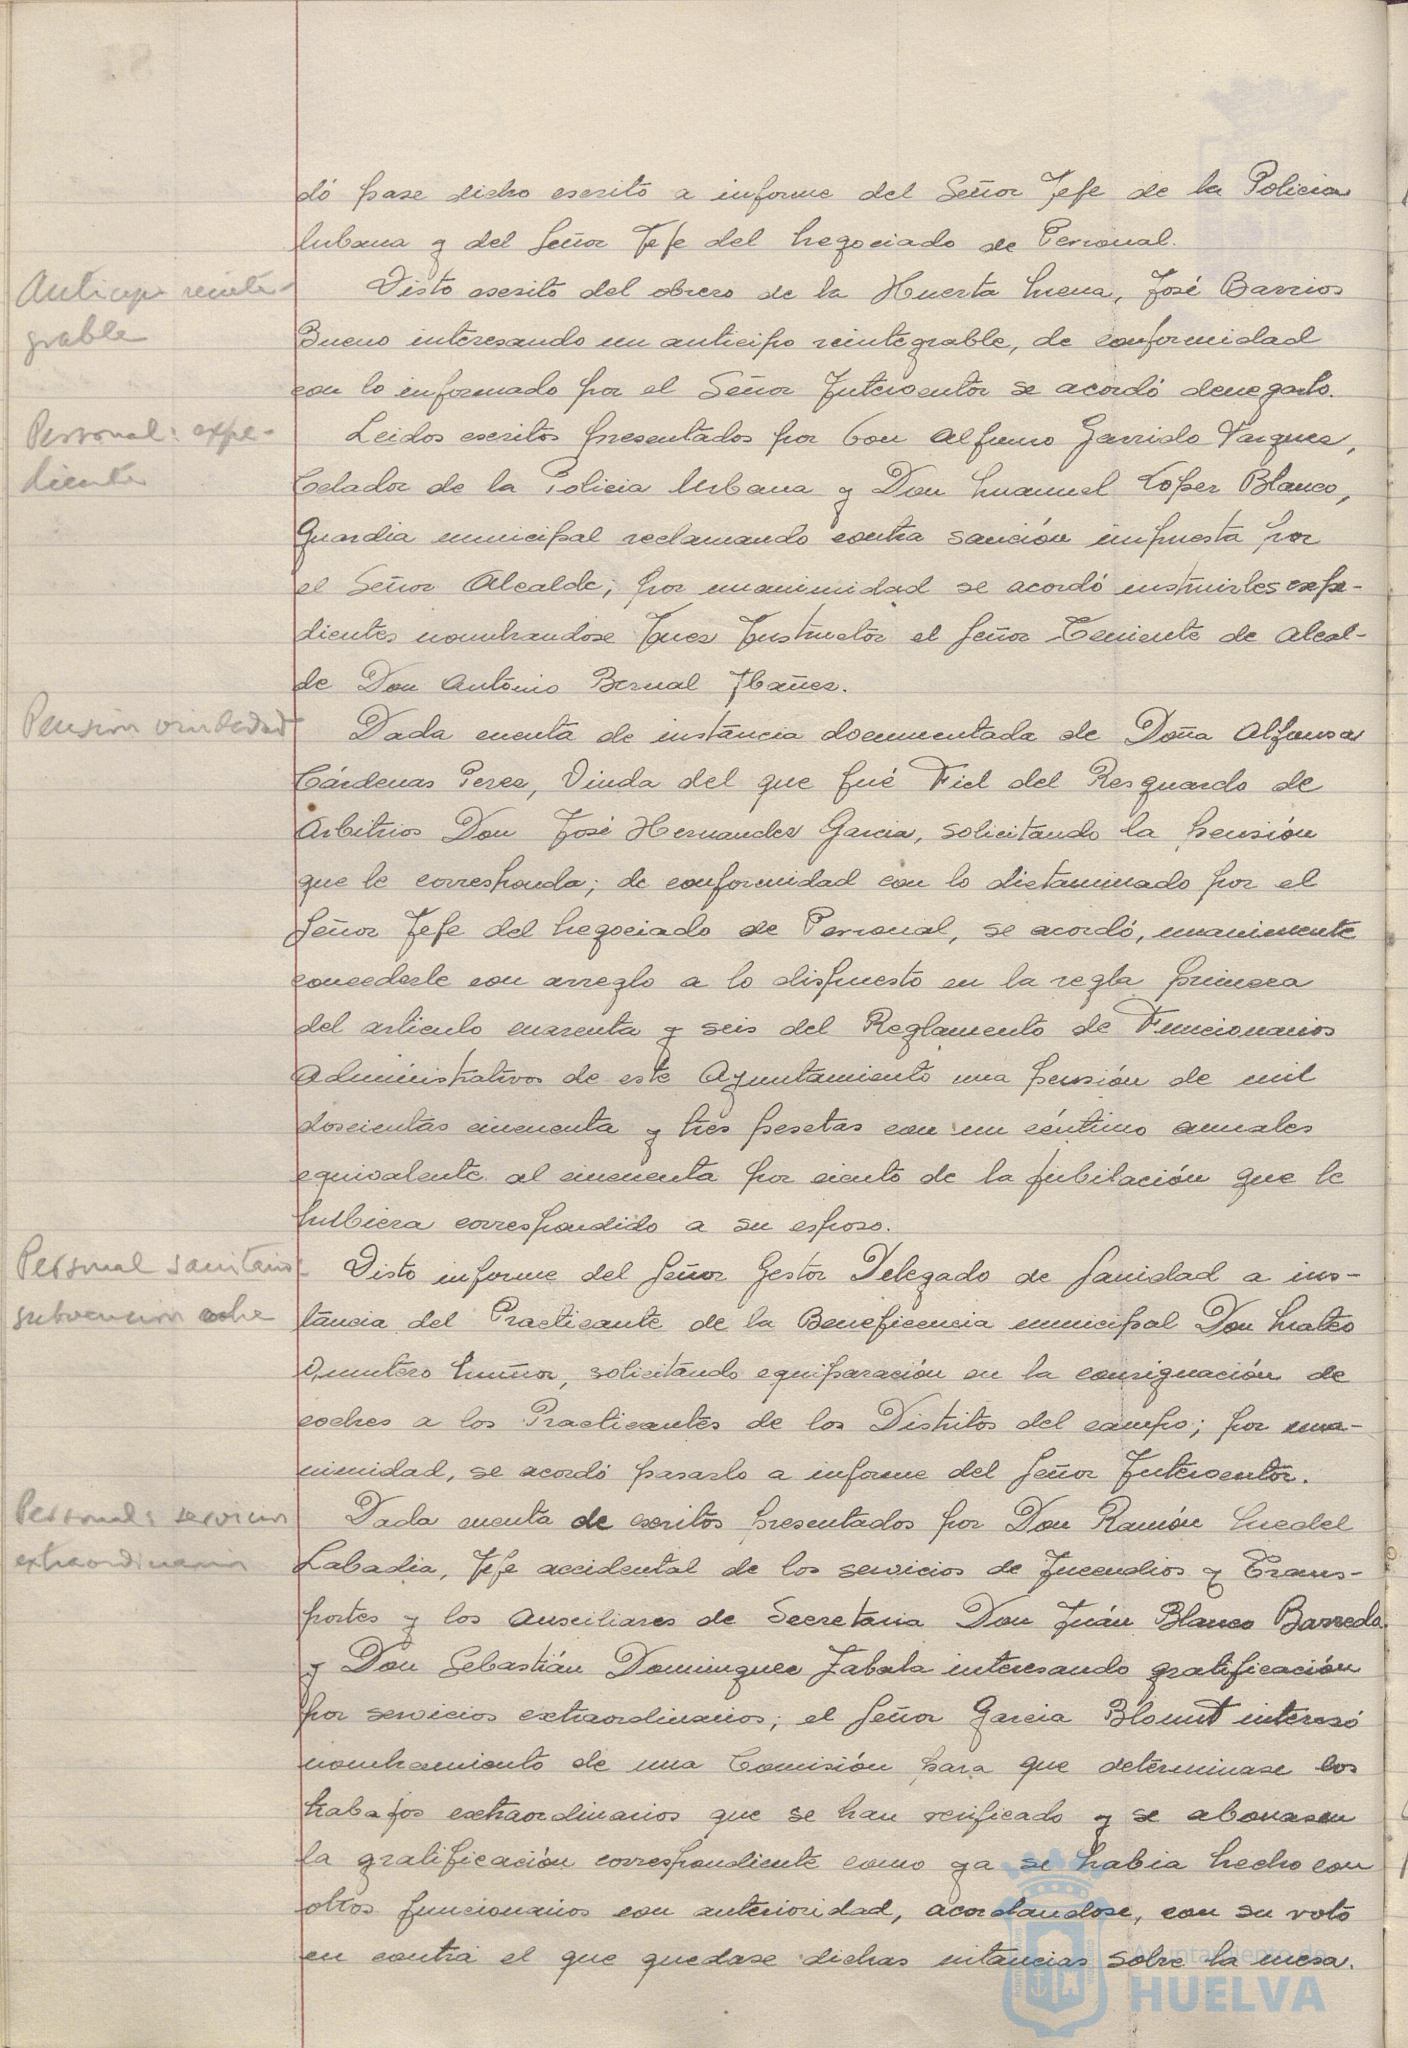 dó pase dicho escrito a informe del Señor Jefe de la Policia
Urbana y del Señor Jefe del Negociado de Personal.
Anticipo reinte-
grable
Visto escrito del obrero de la Huerta Mena, José Barrios
Bueno interesando un anticipo reintegrable, de conformidad
con lo informado por el Señor Interventor se acordó denegarlo.
Personal: expe-
diente
Leidos escritos presentados por Don Alfonso Garrido Vazquez,
Celador de la Policia Urbana y Don Manuel Lopez Blanco,
Guardia municipal reclamando contra sanción impuesta por
el Señor Alcalde; por unanimidad se acordó instruirles expe-
dientes nombrandose Juez Instructor el Señor Teniente de Alcal-
de Don Antonio Bernal Ibañez.
Pensión viudedad
Dada cuenta de instancia documentada de Doña Alfonsa
Cárdenas Perez, Viuda del que fué Fiel del Resguardo de
Arbitrios Don José Hernandez Garcia, solicitando la pensión
que le corresponda; de conformidad con lo dictaminado por el
Señor Jefe del Negociado de Personal, se acordó, unanimente
concederle con arreglo a lo dispuesto en la regla primera
del articulo cuarenta y seis del Reglamento de Funcionarios
Administrativos de este Ayuntamiento una pensión de mil
doscientas cincuenta y tres pesetas con un céntimo anuales
equivalente al cincuenta por ciento de la jubilación que le
hubiera correspondido a su esposo.
Personal sanitario:
subvencion coche
Visto informe del Señor Gestor Delegado de Sanidad a ins-
tancia del Practicante de la Beneficencia municipal Don Mateo
Quintero Muñoz, solicitando equiparación en la consignación de
coches a los Practicantes de los Distritos del campo; por una-
nimidad, se acordó pasarlo a informe del Señor Interventor.
Personal: servicios
extraordinarios
Dada cuenta de escritos presentados por Don Ramón Medel
Labadia, Jefe accidental de los servicios de Incendios y Trans-
portes y los Auxiliares de Secretaria Don Juán Blanco Barreda
y Don Sebastián Dominguez Zabala interesando gratificación
por servicios extraordinarios; el Señor Garcia Blount interesó
nombramiento de una Comisión para que determinase los
trabajos extraordinarios que se han verificado y se abonasen
la gratificación correspondiente como ya se habia hecho con
otros funcionarios con anterioridad, acordandose, con su voto
en contra el que quedase dichas intancias sobre la mesa.
Ayuntamiento de
HUELVA